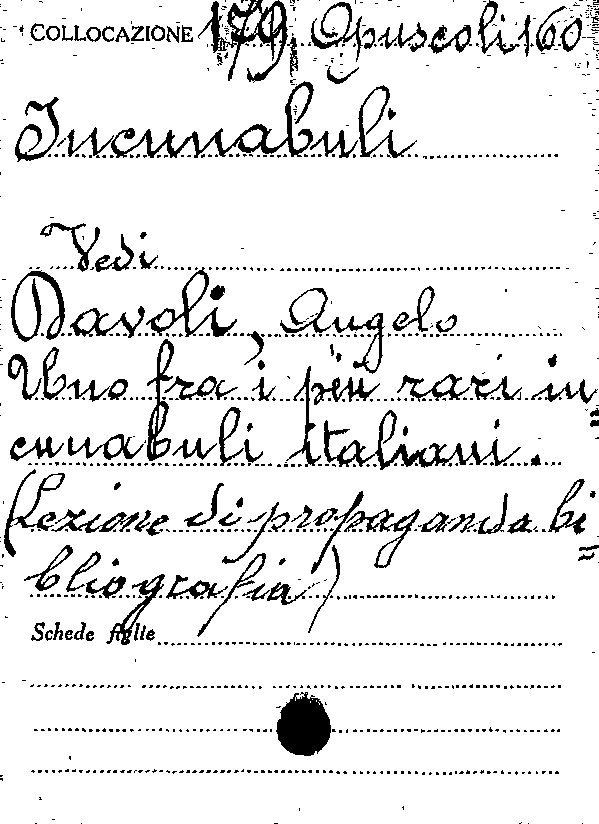 COLLOCAZIONE 179. Opuscoli 160
Incunabuli
Vedi
Davoli, Angelo
Uno fra i più rari in=
cunabuli italiani.
(Lezione di propaganda bi=
bliografia)
Schede figlie